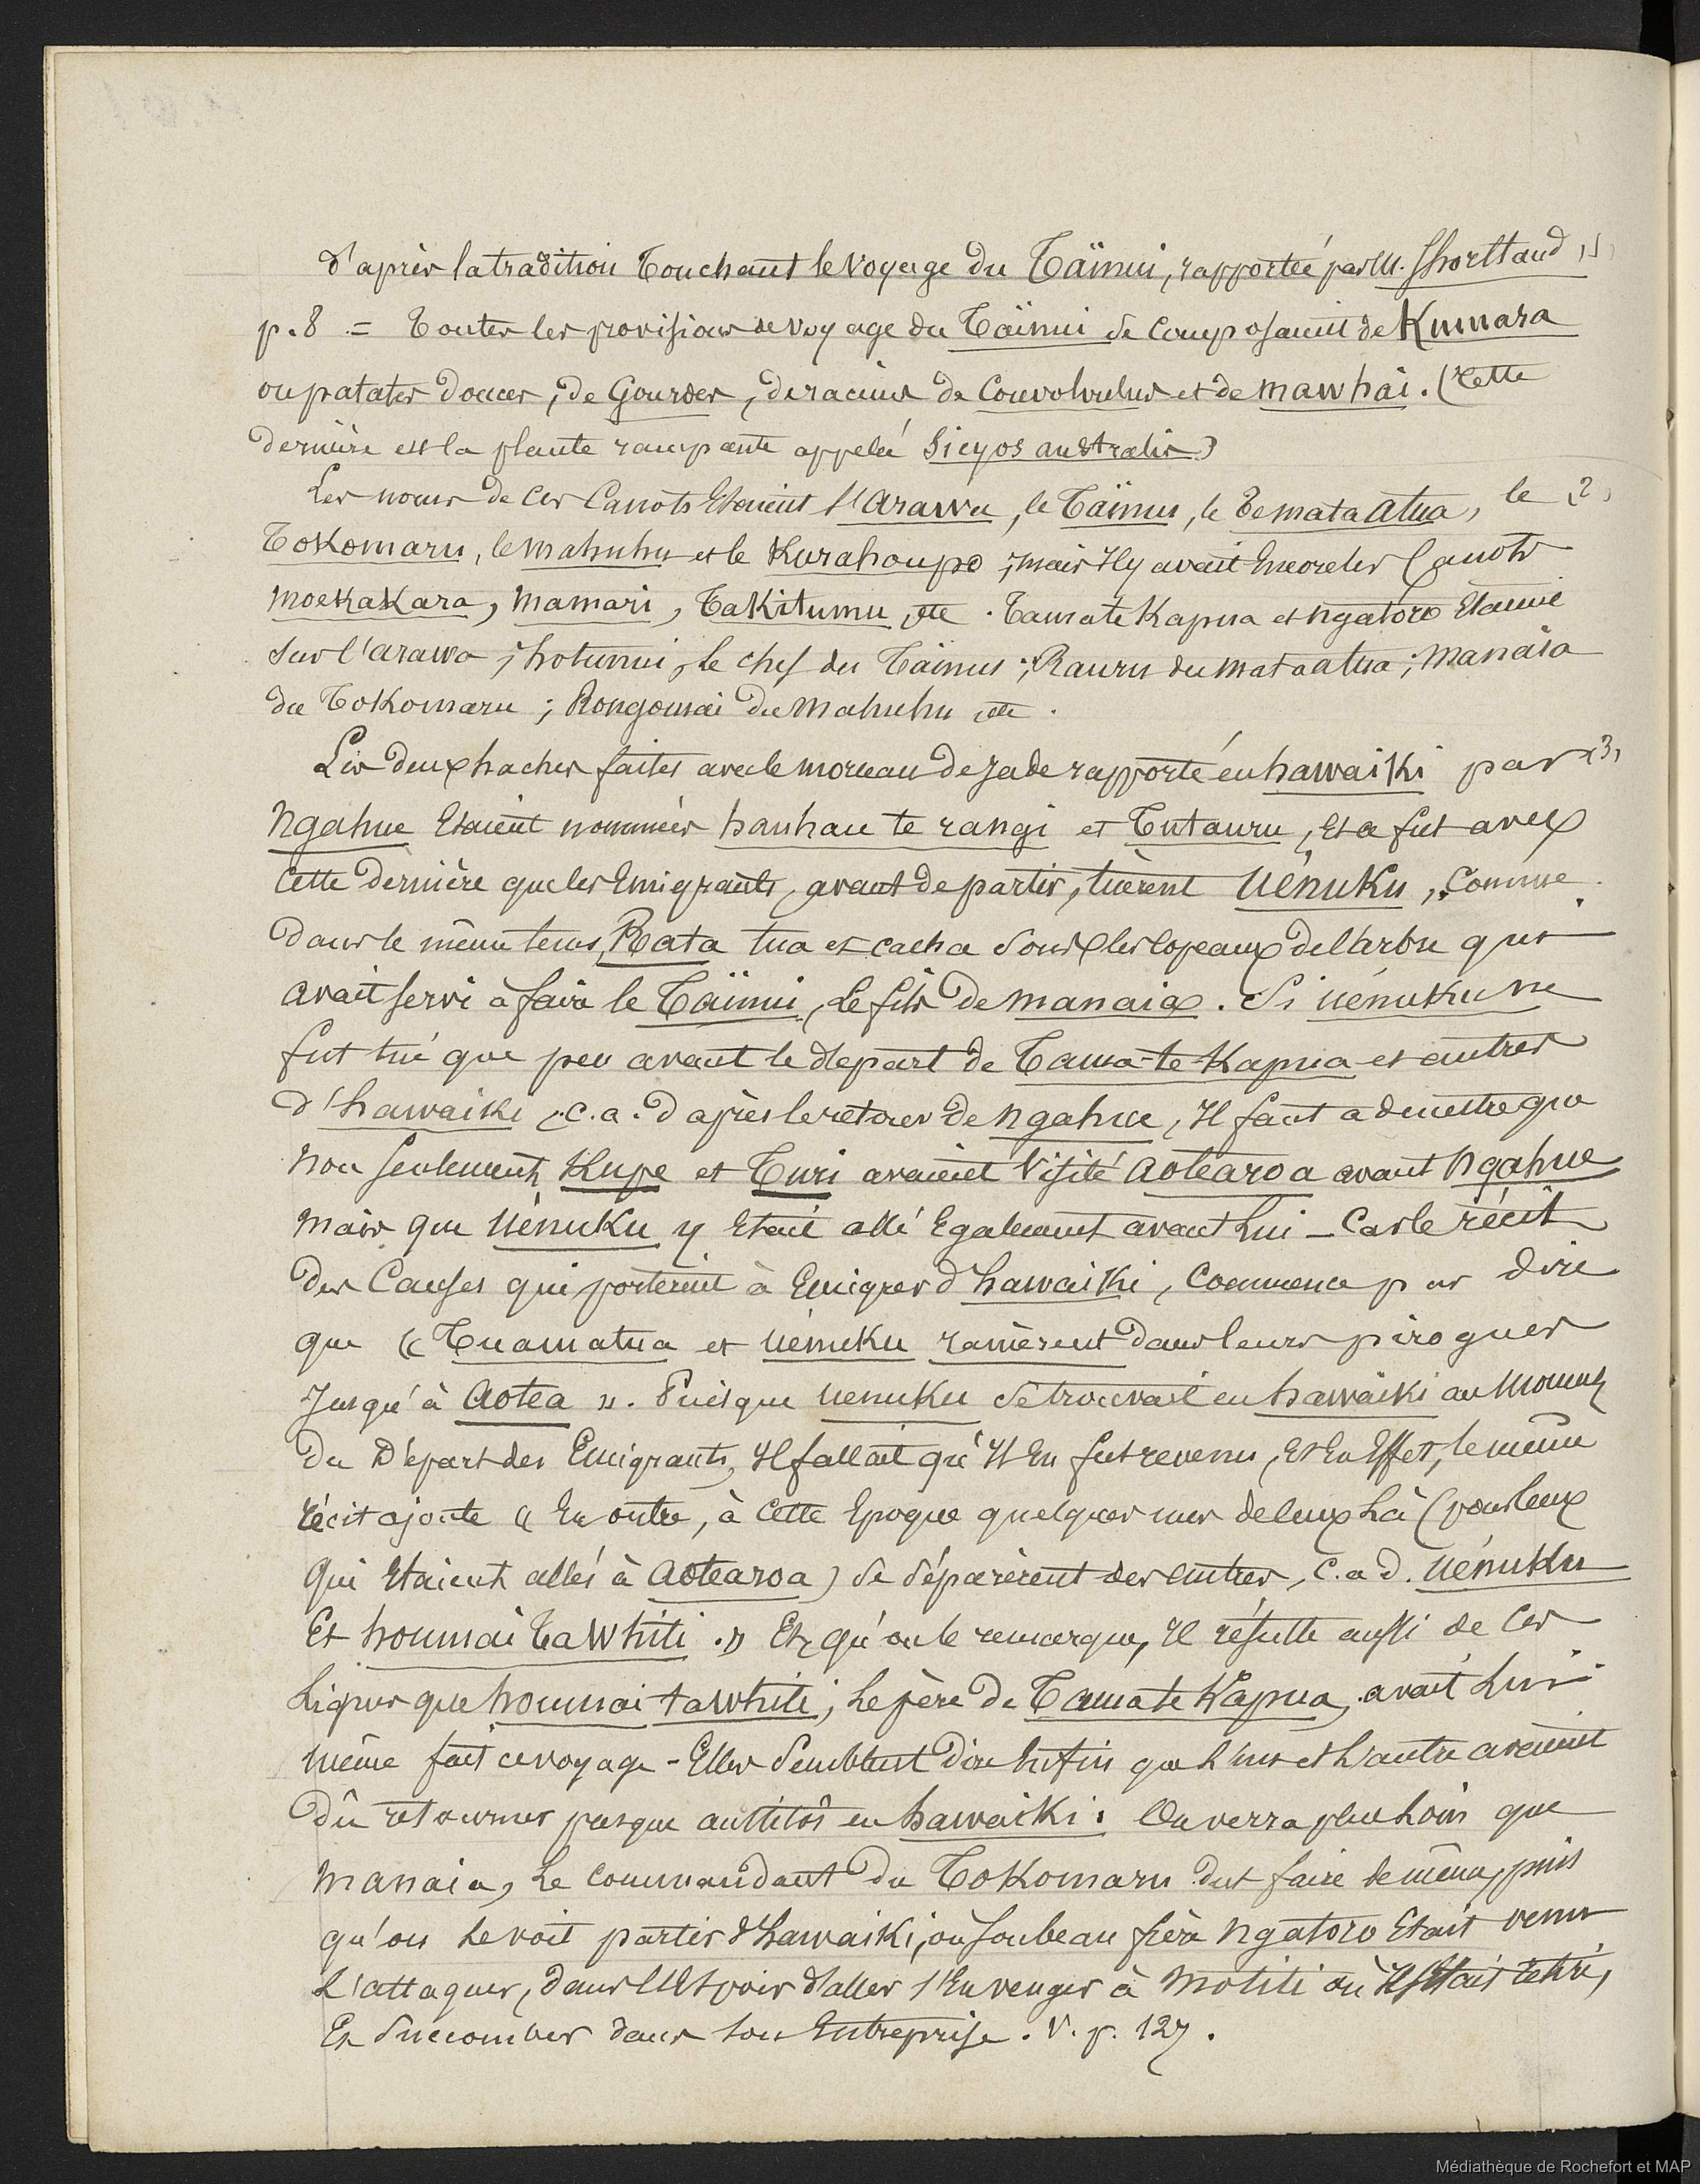 D'après la tradition touchant le voyage du Taïnui, rapportée par M. Shortland (1)
p. 8 = toutes les provisions de voyage du Taïnui se composaient de Kumara
ou patates douces, de Gourdes, de racines de Convolvulus et de mawhai. (Cette
dernière est la plante rampante appelée Sicyos australis)
Les noms de ces Canots Etaient l'arawa, le Taïnui, le Te mata atua, le (2)
Tokomaru, le mahuhu et le Kurahoupo ; mais Il y avait Encore les Canots
moekakara, mamari, Takitumu, etc. Tamate Kapua et ngatoro Etaient
sur l'arawa ; hotunui, le chef du Taïnui ; Rauru du mataatua ; manaia
du Tokomaru ; Rongomai du mahuhu etc.
Les deux haches faites avec le morceau de jade rapporté en hawaiki par (3)
Ngahue Etaient nommées hauhau te rangi et Tutauru, Et ce fut avec
cette dernière que les Emigrants, avant de partir, tuèrent Uénuku, comme
dans le même tems, Rata tua et cacha sous les copeaux de l'arbre qui
avait servi à faire le Taïnui, le fils de manaia. Si uénuku ne
fut tué que peu avant le départ de Tama-te-Kapua et autres
d'hawaiki, c. a. d après le retour de ngahue, Il faut admettre que
non seulement Kupe et Turi avaient Visité aotearoa avant ngahue
mais que Uénuku y Etait allé Egalement avant Lui _ Car le récit
des Causes qui portèrent à Emigrer d'hawaiki, commence par dire
que « Tuamatua et uénuku ramèrent dans leurs pirogues
Jusqu'à aotea ». Puisque uenuku se trouvait en hawaiki au moment
du Départ des Emigrants, Il fallait qu'Il En fut revenu, Et En Effet, le même
récit ajoute « En outre, à cette Epoque quelques uns de ceux Là (pour ceux
qui Etaient allés à aotearoa) se séparèrent des autres, c. a d. uénuku
Et houmai Tawhiti. » Et, qu'on le remarque, Il résulte aussi de ces
Lignes que houmai tawhiti, Le père de Tamate Kapua, avait Lui
même fait ce voyage - Elles semblent dire Enfin que L'un et L'autre avaient
dû retourner presque aussitôt en hawaiki. On verra plus Loin que
manaia, Le commandant du Tokomaru dut faire de même, puis
qu'on Le voit partir d'hawaiki, où son beau frère ngatoro Etait venu
L'attaquer, dans l'Espoir d'aller s'En venger à motiti où Il s'Etait retiré,
Et succomber dans son Entreprise. V. p. 127.
Médiathèque de Rochefort et MAP